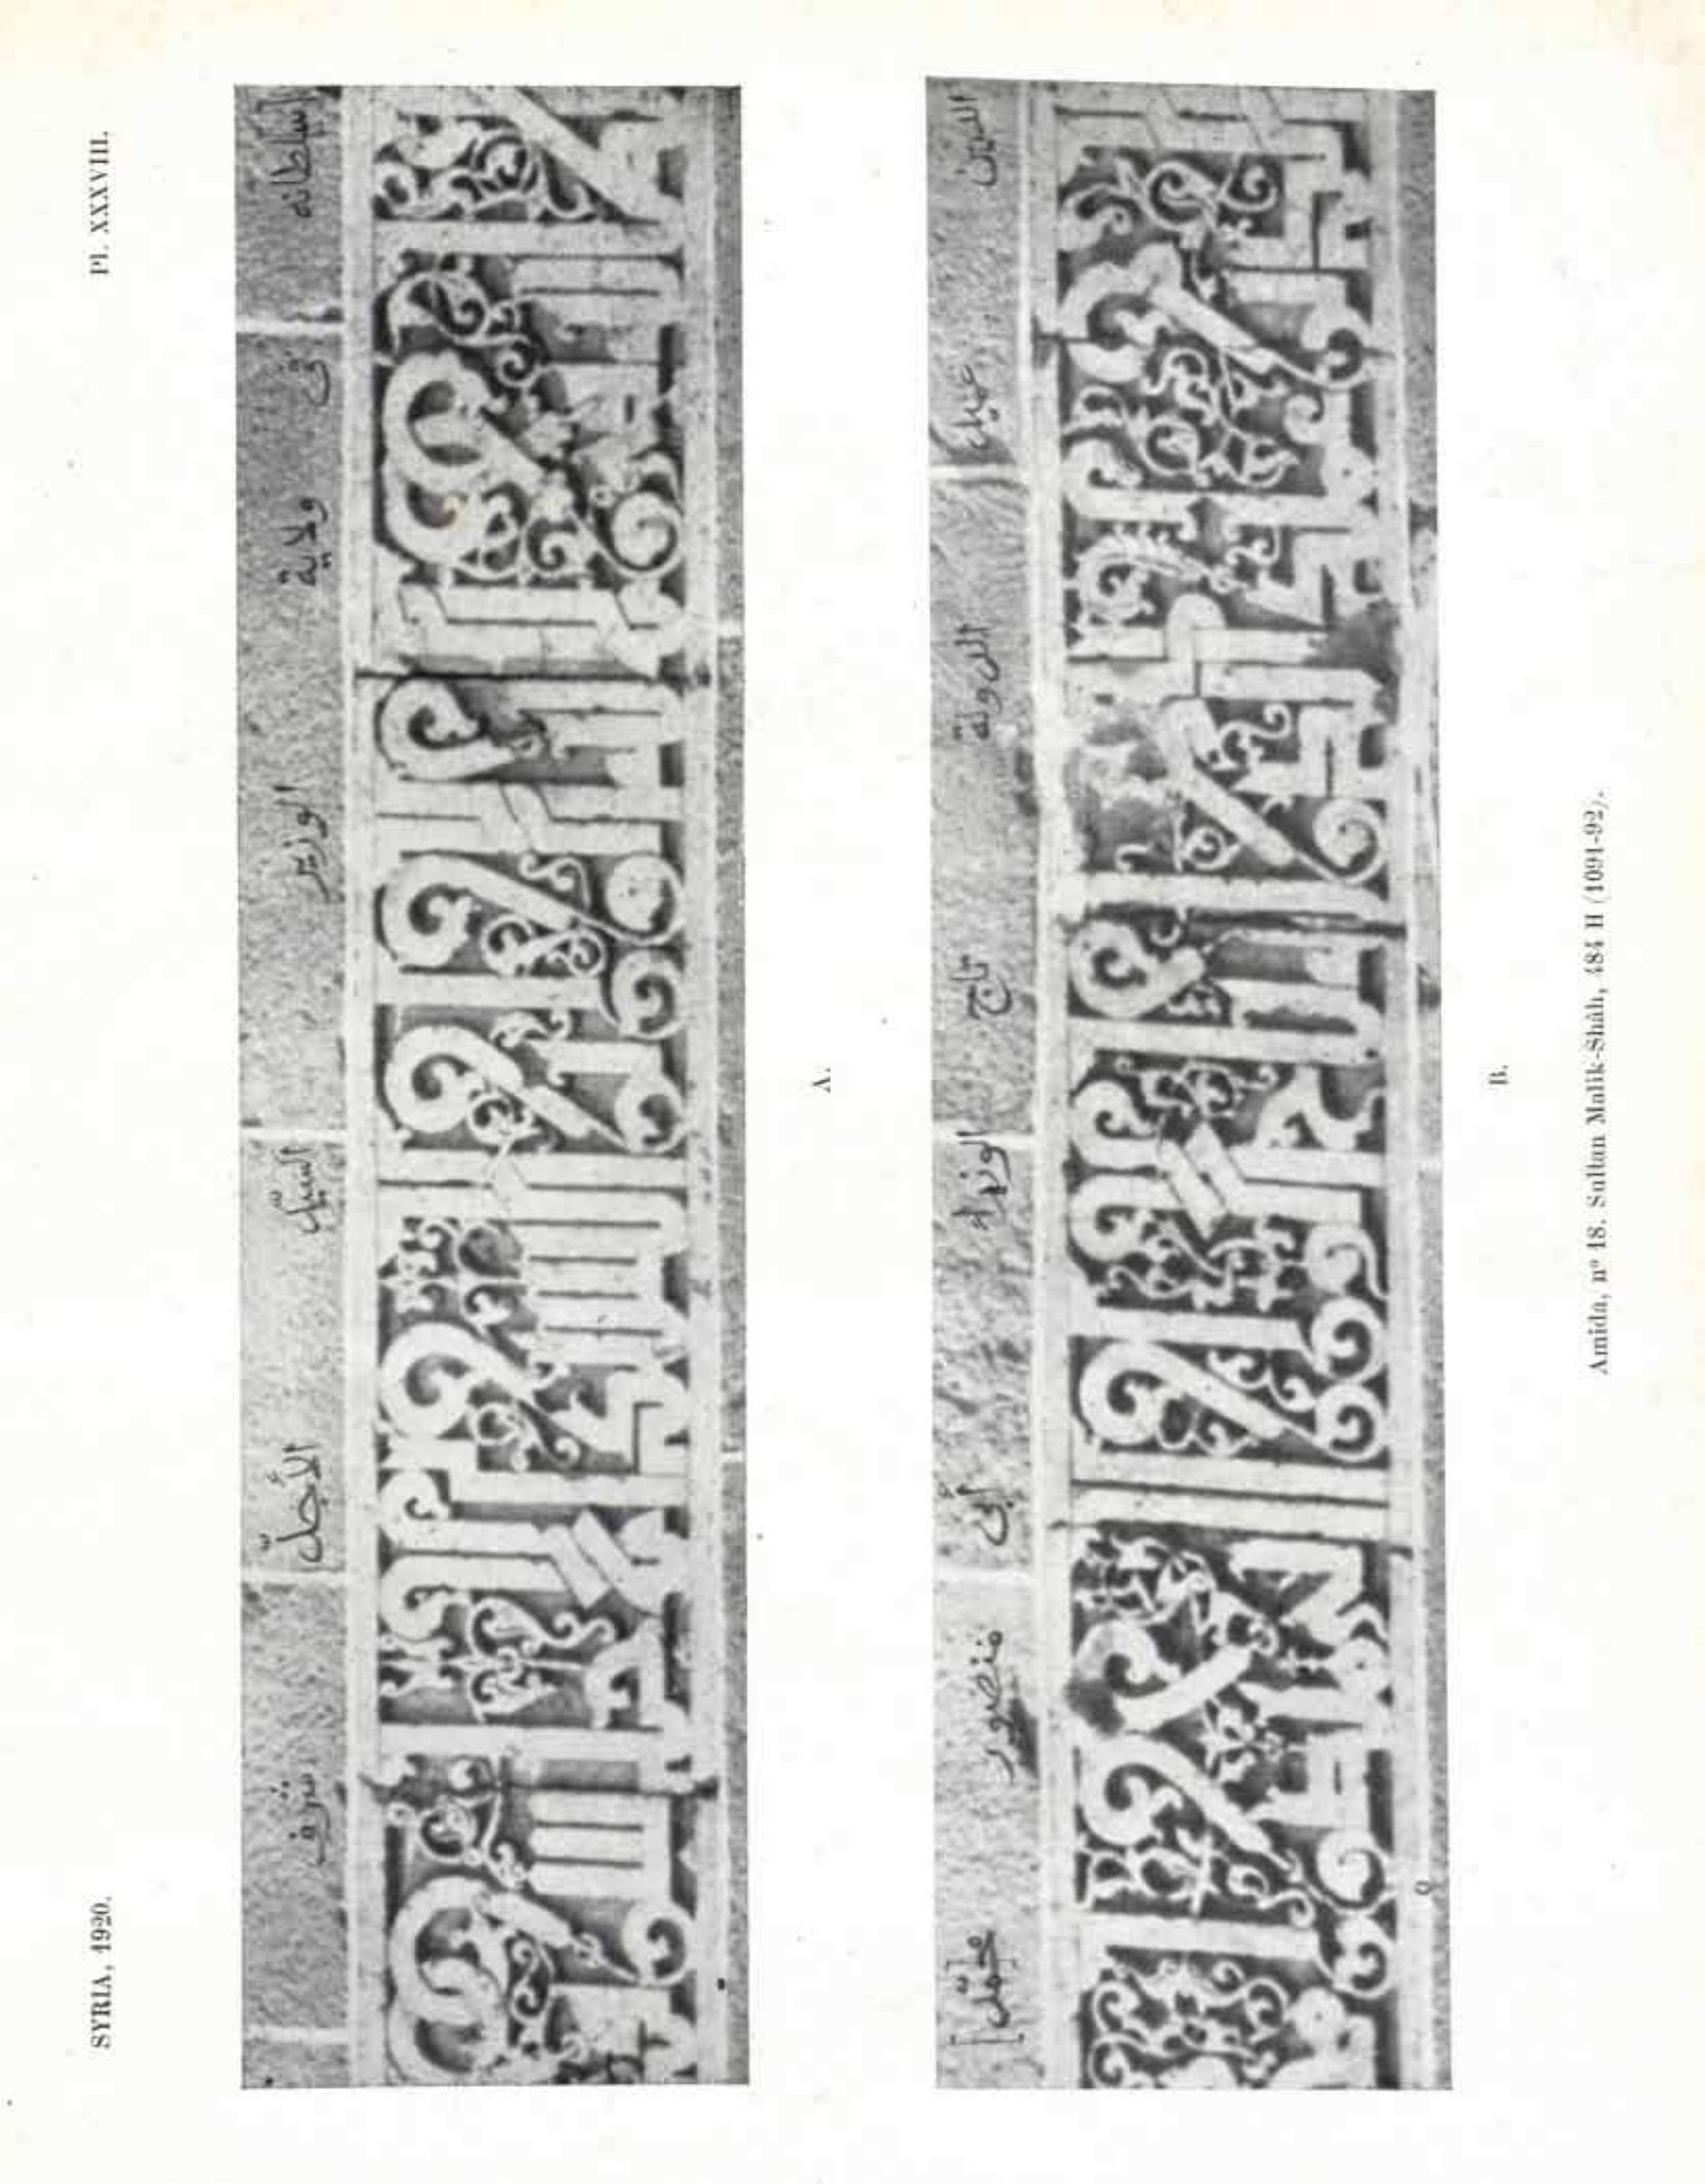 SYRIA, 1920. Pl. XXXVIII.
السلطانه في ولاية الوزير السيّد الأجلّ شرف
A.
الدين عميد الدولة تاج الوزراء أبي منصور محمّد]
B.
Amida, nº 18. Sultan Malik-Shâh, 484 H (1091-92).